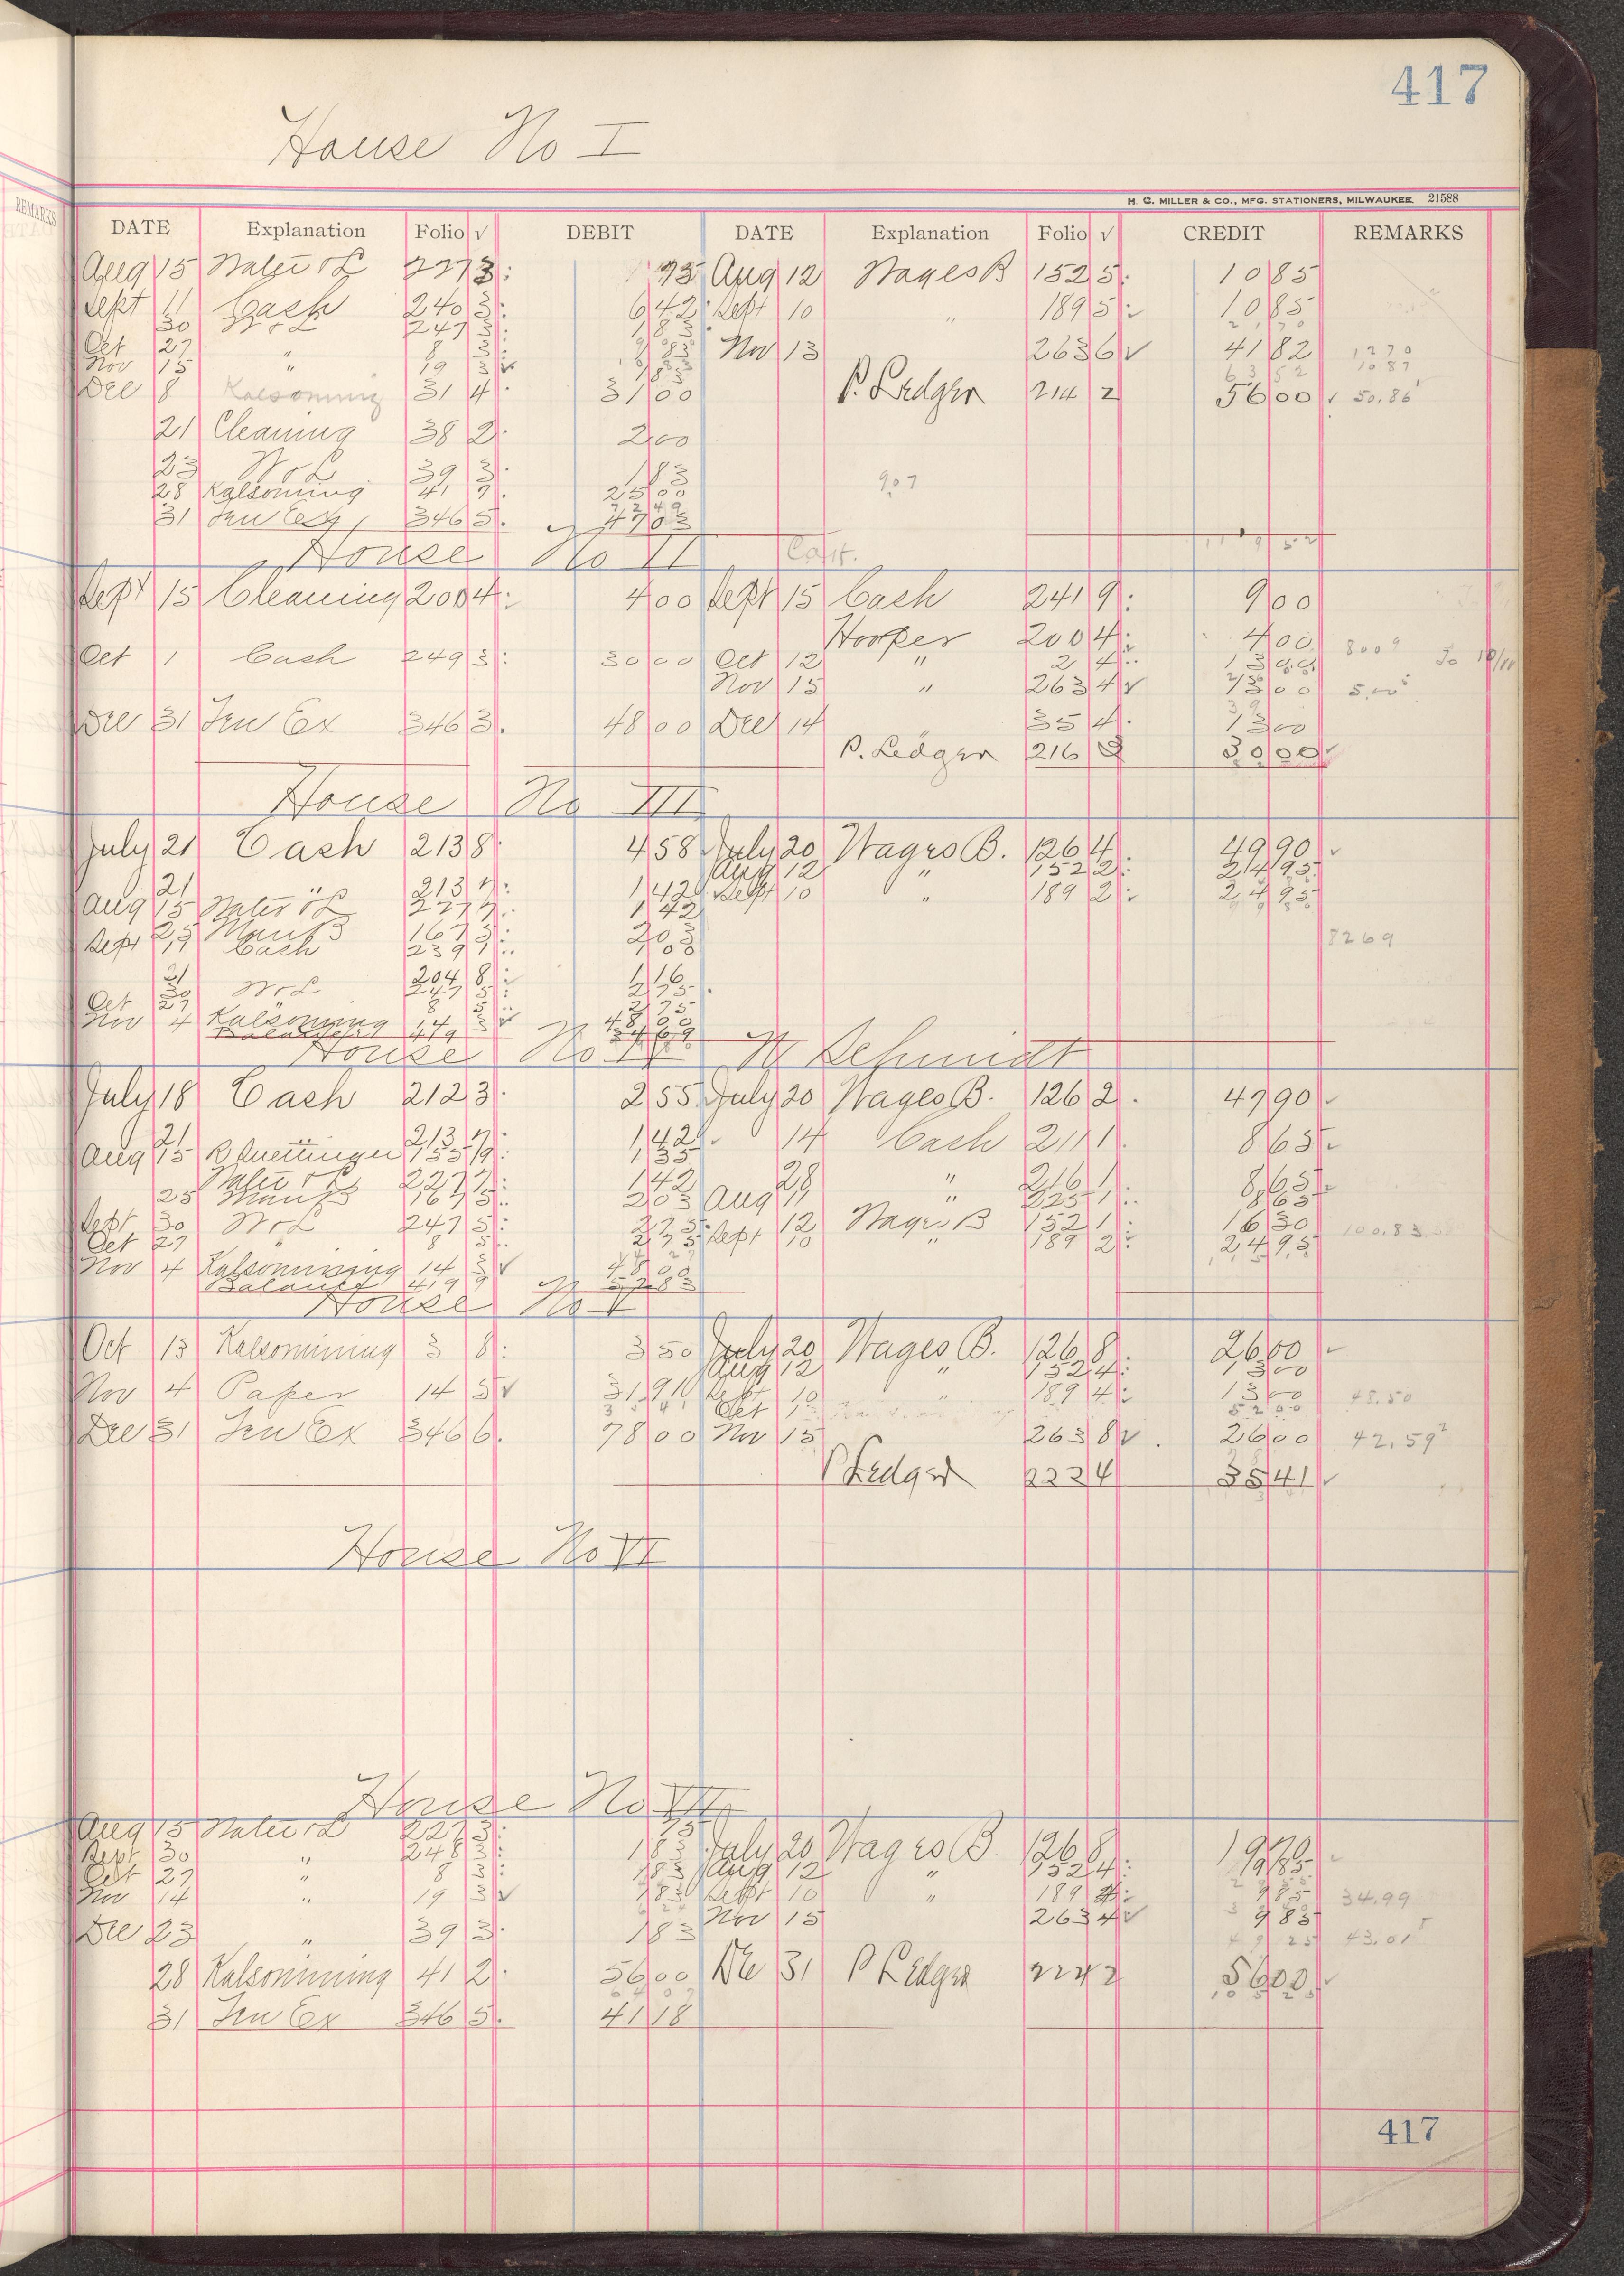 417
House No I
H. C. MILLER & CO., MFG. STATIONERS, MILWAUKEE 21588
DATE Explanation Folio √ DEBIT DATE Explanation Folio √ CREDIT REMARKS
Aug 15 Water & L 227 3 75 Aug 12 Wages B 152 5 10 85
Sept 11 Cash 240 3 6 42 Sept 10 " 189 5 10 85
30 W & L 247 3 1 83
Oct 27 " 8 3 1 83 Nov 13 263 6 √ 41 82 1270
Nov 15 " 19 3 √ 1 83 1087
Dec 8 Kalsomining 31 4 31 00 P. Ledger 214 2 56 00 √ 50.86
21 Cleaning 38 2 2 00
23 W & L 39 3 1 83
28 Kalsomining 41 7 25 00 907
31 Inv Ex 346 5 47 03
House No II
Sept 15 Cleaning 200 4 4 00 Sept 15 Cash 241 9 9 00
Hooper 200 4 4 00
Oct 1 Cash 249 3 30 00 Oct 12 " 2 4 13 00
Nov 15 " 263 4 √ 13 00
Dec 31 Inv Ex 346 3 48 00 Dec 14 " 35 4 13 00
P. Ledger 216 30 00 √
House No III
July 21 Cash 213 8 4 58 July 20 Wages B. 126 4 49 90 √
Aug 12 " 152 2 24 95
21 " 213 7 1 42 Sept 10 " 189 2 24 95
Aug 15 Water & L 227 7 1 42
25 167 3 2 03
Sept 17 Cash 239 1 1 00
8269
21 204 8 1 16
30 W & L 247 5 2 75
Oct 27 " 8 5 2 75
Nov 4 Kalsomining 14 3 √ 48 00
Balance 419 34 69
House No IV W Schmidt
July 18 Cash 212 3 2 55 July 20 Wages B. 126 2 49 90 √
21 " 213 7 1 42 14 Cash 211 1 8 65
Aug 15 155 9 1 35
Water & L 227 7 1 42 28 " 216 1 8 65
25 167 5 2 03 Aug 11 " 225 1 8 65
Sept 30 W & L 247 5 2 75 12 Wages B 152 1 16 30
Oct 27 " 8 5 2 75 Sept 10 " 189 2 24 95 100.83
Nov 4 Kalsomining 14 3 √ 48 00
Balance 419 9 52 83
House No V
Oct 13 Kalsomining 3 8 3 50 July 20 Wages B. 126 8 26 00 √
Aug 12 " 152 4 13 00
Nov 4 Paper 14 5 √ 31 91 Sept 10 " 189 4 13 00 48.50
Dec 31 Inv Ex 346 6 78 00 Nov 15 263 8 √ 26 00 42.59
P Ledger 222 4 35 41 √
House No VI
House No VII
Aug 15 Water & L 227 3 75
Sept 30 " 248 3 1 83 July 20 Wages B. 126 8 19 70 √
Oct 27 " 8 3 1 83 Aug 12 " 152 4 9 85
Nov 14 " 19 3 √ 1 83 Sept 10 " 189 4 9 85 34.99
Nov 15 263 4 √ 9 85
Dec 23 " 39 3 1 83 43.01
28 Kalsomining 41 2 56 00 Dec 31 P Ledger 224 2 56 00 √
31 Inv Ex 346 5 41 18
417